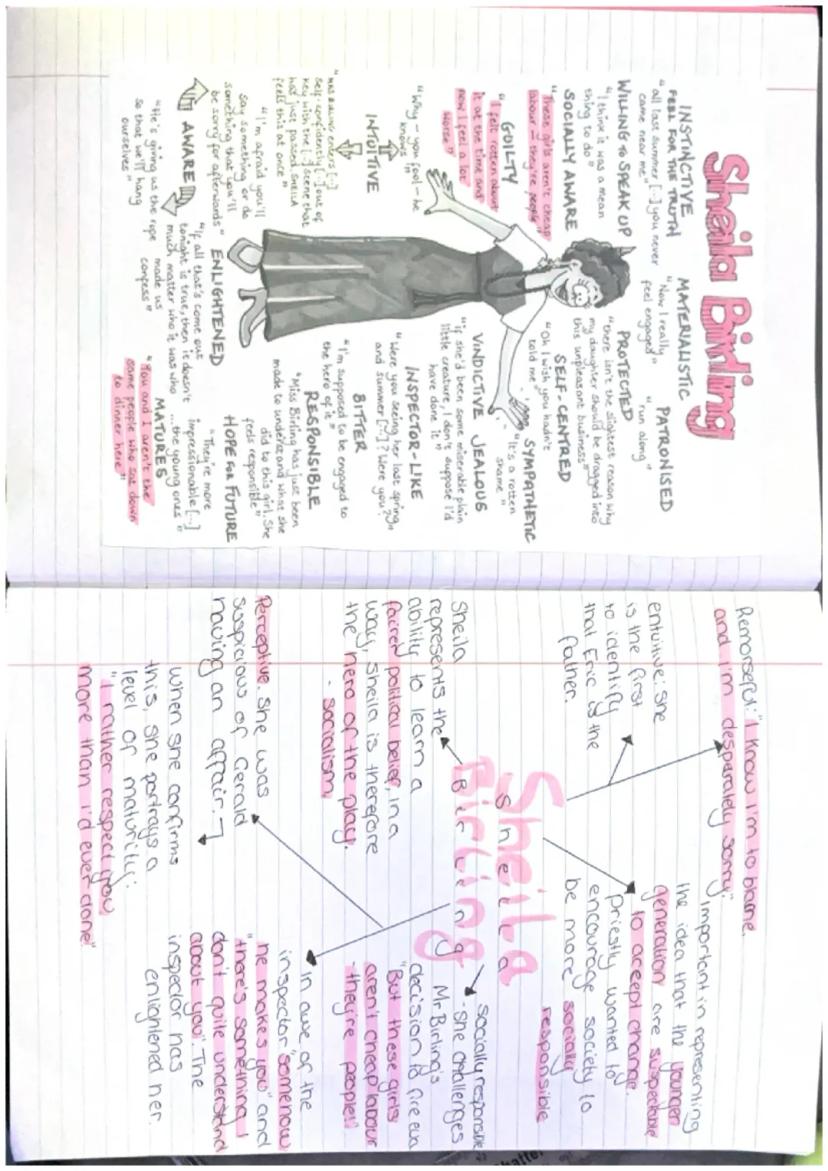 Sheila Birling
INSTINCTIVE
FEEL FOR THE TRUTH
"all last summer [..] you never
came near me"
WILLING TO SPEAK UP
"I think it was a mean
thing to do"
SOCIALLY AWARE
"These girls aren't cheap
labour – they're people"
GUILTY
"I felt rotten about
it at the time and
now I feel a lot
worse"
"Why – you fool – he
knows"
INTUITIVE
self-confidently [..] out of
key with the [..] scene that
has just passed. SHEILA
feels this at once"
"I'm afraid you'll
say something or do
something that you'll
be sorry for afterwards"
AWARE
"He's giving us the rope
so that we'll hang
ourselves"
MATERIALISTIC
"Now I really
feel engaged"
PATRONISED
"run along"
PROTECTED
"there isn't the slightest reason why
my daughter should be dragged into
this unpleasant business"
SELF-CENTRED
"Oh I wish you hadn't
told me"
SYMPATHETIC
"It's a rotten
shame"
VINDICTIVE JEALOUS
"if she'd been some miserable plain
little creature, I don't suppose I'd
have done it"
INSPECTOR-LIKE
"Were you seeing her last spring
and summer [..]? Were you?"
BITTER
"I'm supposed to be engaged to
the hero of it"
RESPONSIBLE
"Miss Birling has just been
made to understand what she
did to this girl. She
feels responsible"
ENLIGHTENED
"if all that's come out
tonight is true, then it doesn't
much matter who it was who
made us
confess"
HOPE FOR FUTURE
"They're more
impressionable [..]
...the young ones"
MATURES
"You and I aren't the
same people who sat down
to dinner here"
Remorseful: "I know I'm to blame.
and I'm desparately sorry".
entuitive: she
is the first
to identify
that Eric is the
father.
Important in representing
the idea that the younger
generation are suspectable
to accept change.
priestly wanted to
encourage society to
be more socially
responsible
Sheila
Birling
Sheila
Birling
Sheila
represents the
ability to learn a
faired political belief, in a
way, Sheila is therefore
the hero of the play.
- socialism
socially responsible:
- she challenges
Mr Birling's
decision to fire eva
"But these girls
aren't cheap labour
- they're people!"
Perceptive. She was
suspicious of Gerald
having an affair.
when she confirms
this, she portrays a
level of maturity:
"I rather respect you
more than I'd ever done"
In awe of the
inspector "somehow
he makes you" and
"there's something I
don't quite understand
about you". The
inspector has
enlightened her.